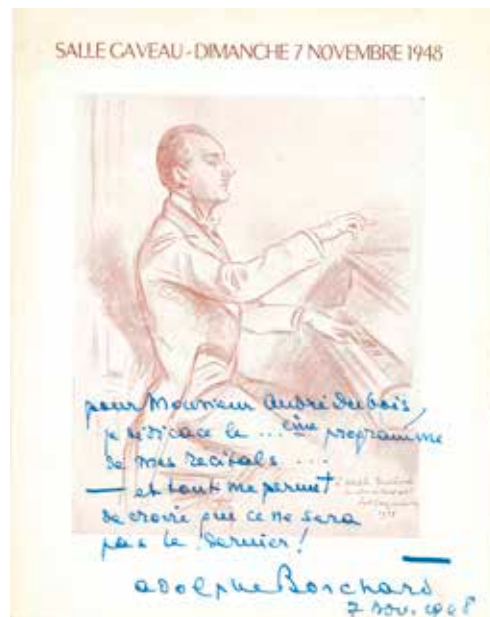 SALLE GAVEAU - DIMANCHE 7 NOVEMBRE 1948
pour Monsieur André Dubois,
je dédicace le ... ème programme
de mes récitals ...
— et tout me permet
de croire que ce ne sera
pas le dernier !
Adolphe Borchard
7 nov. 1948